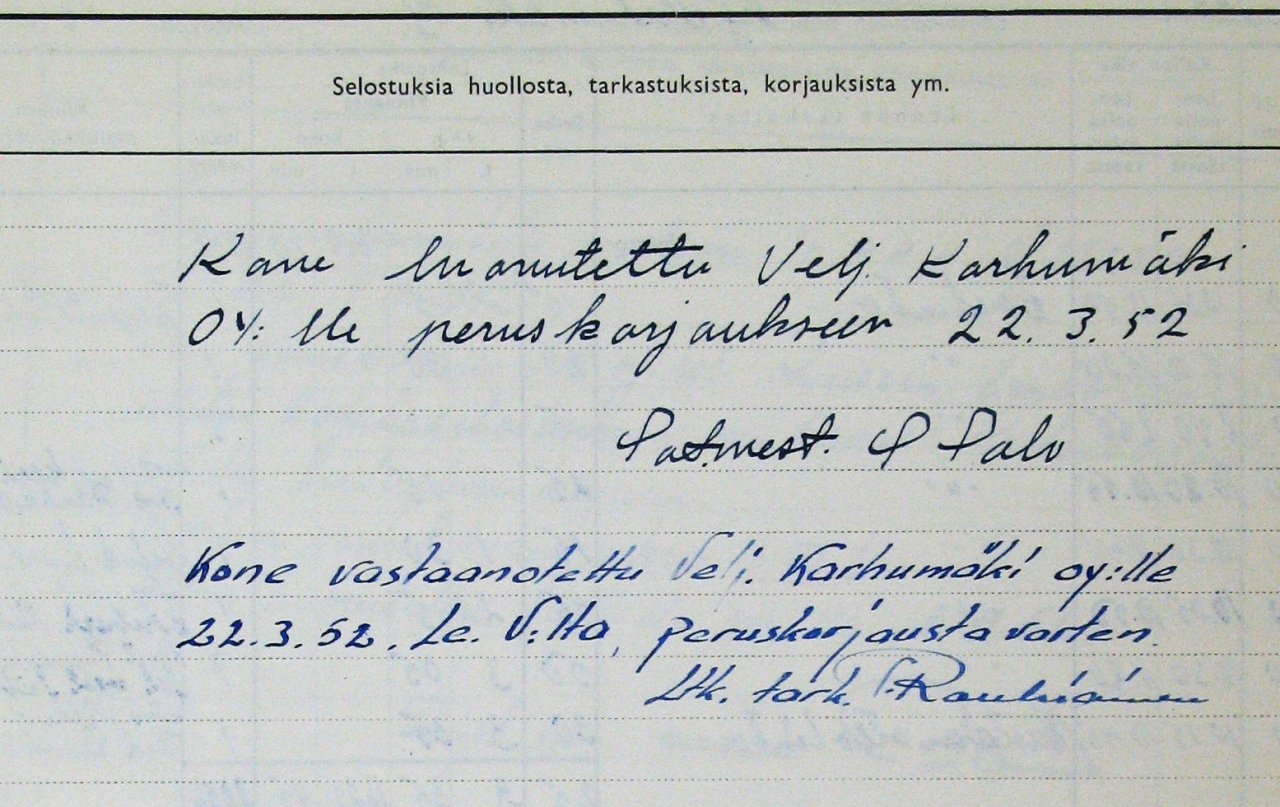 Selostuksia huollosta, tarkastuksista, korjauksista ym.
Kone luovutettu Velj. Karhumäki
OY: lle peruskorjaukseen 22.3.52
Sot.mest.
Kone vastaanotettu Velj. Karhumäki oy:lle
22.3.52. Le. V:lta, peruskorjausta varten.
Ltk. tark.